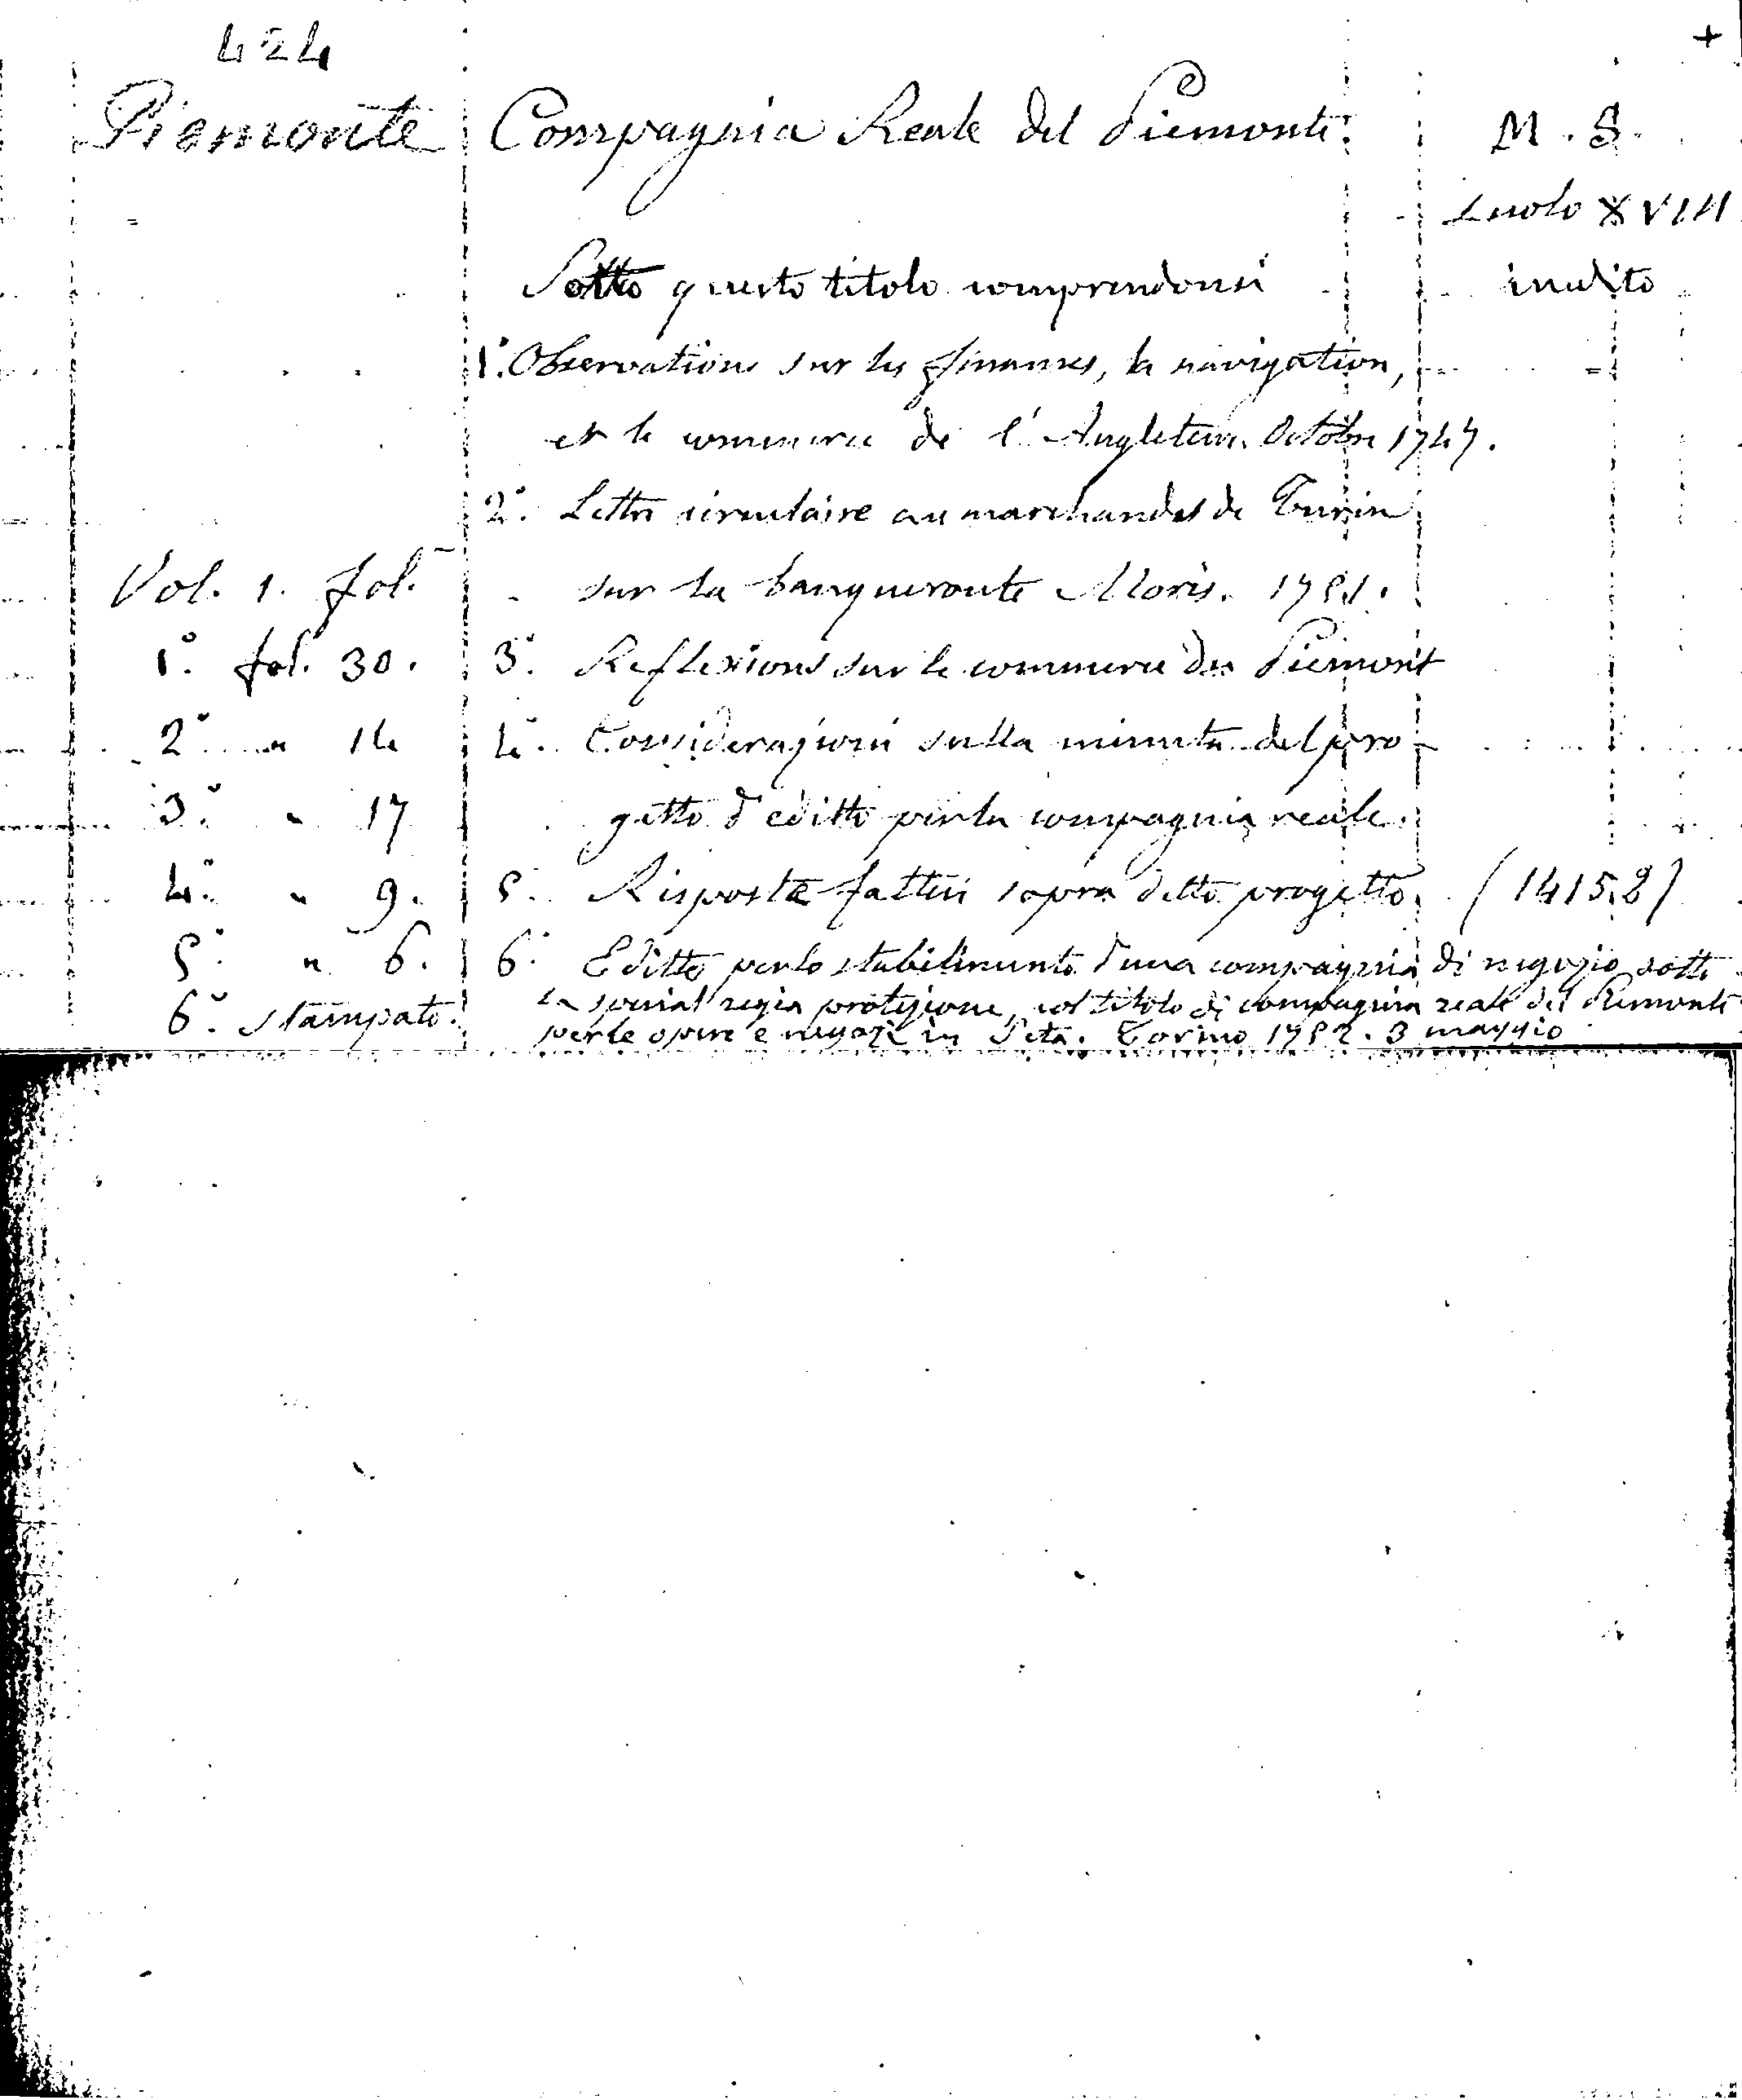 424 +
Piemonte Compagnia Reale del Piemonte. M. S.
secolo XVIII
Sotto questo titolo comprendonsi inedito
1.° Observations sur les finances, la navigation,
et le commerce de l'Angleterre. Octobre 1747.
2.° Lettre circulaire au marchandes de Turin
Vol. 1. fol. sur la banqueroute Moris. 1751.
1.° fol. 30. 3.° Reflexions sur le commerce du Piemont
2.° " 14 4.° Considerazioni sulla minuta del pro-
3.° " 17 getto d'editto per la compagnia reale.
4.° " 9. 5.° Risposte fattesi sopra detto progetto. (14158)
5.° " 6. 6.° Editto per lo stabilimento d'una compagnia di negozio sotto
la special regia protezione, col titolo di compagnia reale del Piemonte
6.° stampato. per le opere e negozi in Seta. Torino 1752. 3 maggio